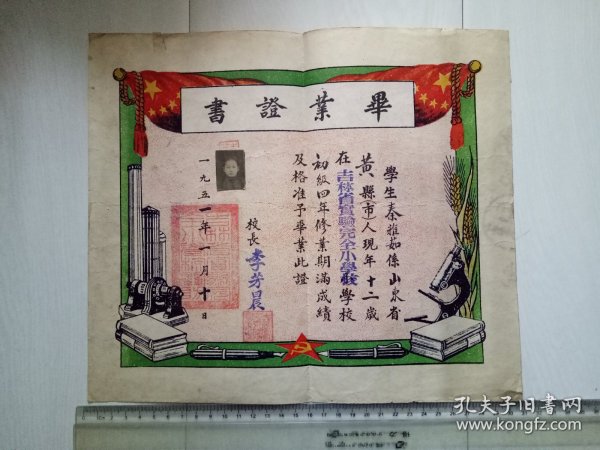 畢業證書
學生秦雅茹係山東省
黃縣(市)人現年十二歲
在吉林省實驗完全小學校學校
初級四年修業期滿成績
及格准予畢業此證
校長李芳晨
一九五一年一月十日
孔夫子旧书网
www.kongfz.com